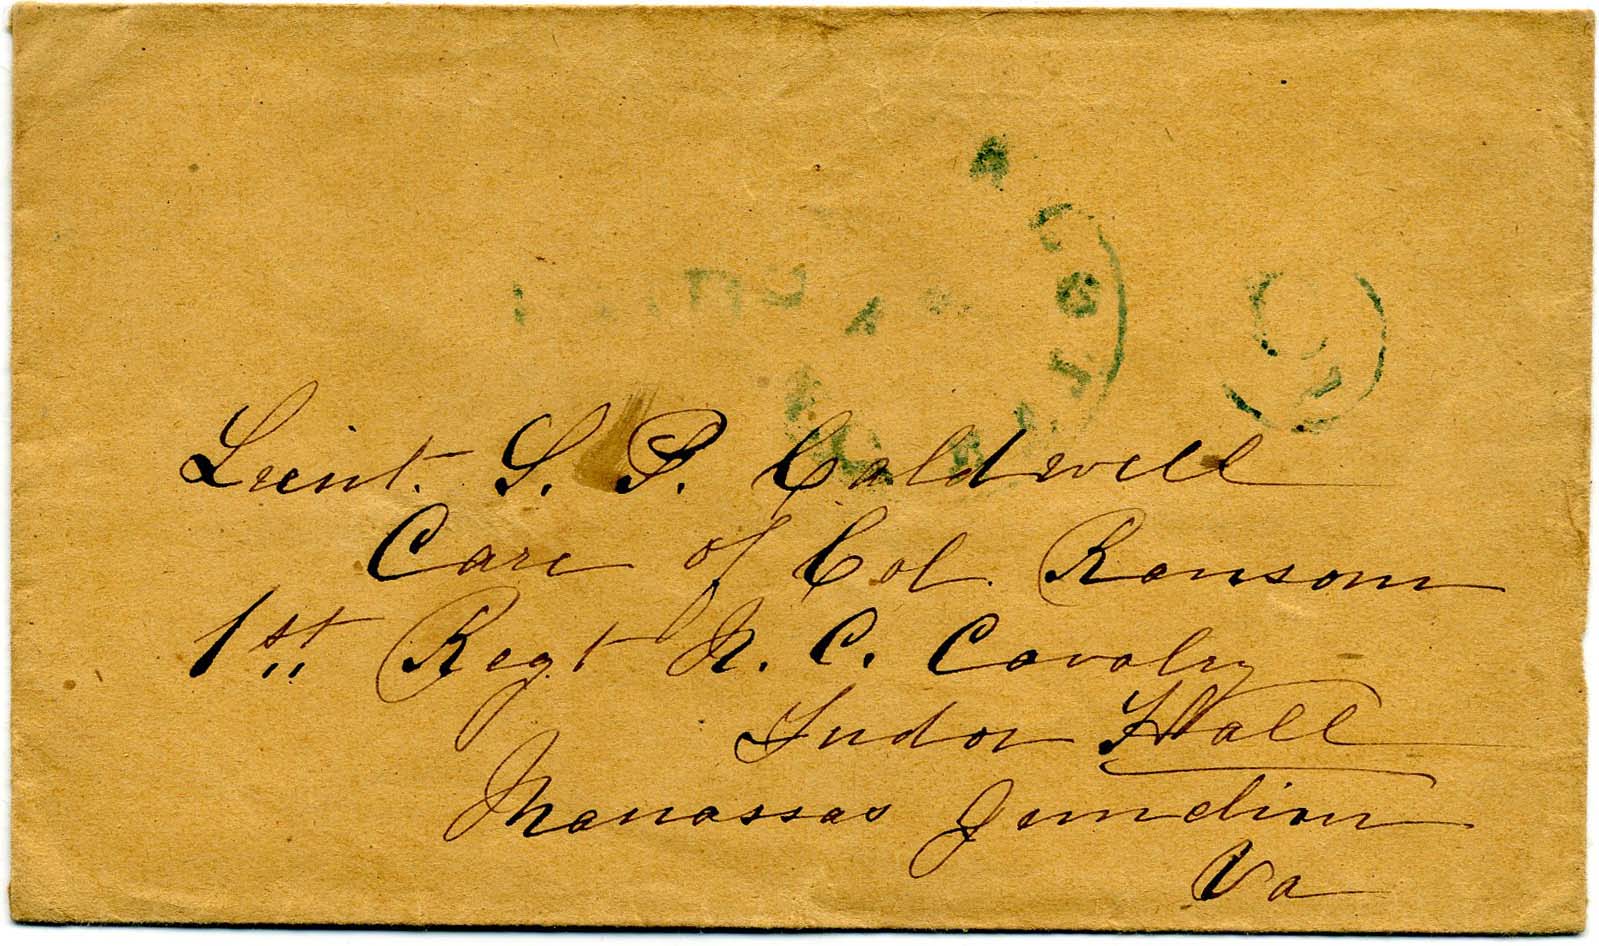 Lieut. S. P. Caldwell
Care of Col. Ransom
1st Regt N. C. Cavalry
Tudor Hall
Manassas Junction
Va